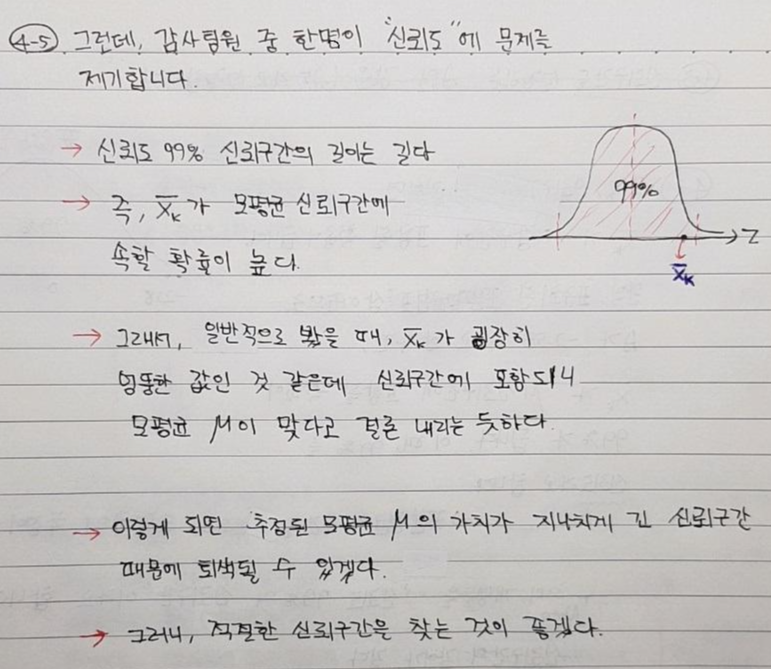 4-5 그런데, 감사팀원 중 한명이 "신뢰도"에 문제를
제기합니다.
→ 신뢰도 99% 신뢰구간의 길이는 길다
→ 즉, X̄ₖ가 모평균 신뢰구간에
속할 확률이 높다.
99%
Z
X̄ₖ
→ 그래서, 일반적으로 봤을 때, X̄ₖ가 굉장히
엉뚱한 값인 것 같은데 신뢰구간에 포함되니
모평균 μ이 맞다고 결론 내리는 듯하다.
→ 이렇게 되면 추정된 모평균 μ의 가치가 지나치게 긴 신뢰구간
때문에 퇴색될 수 있겠다.
→ 그러니, 적절한 신뢰구간을 찾는 것이 좋겠다.